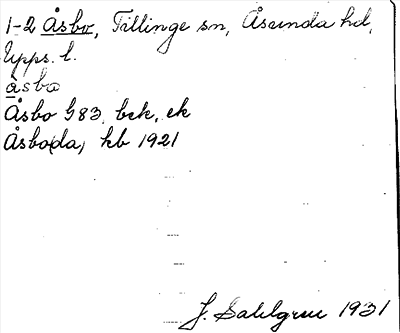 1-2 Åsbo, Tillinge sn, Åsunda hd,
Upps. l.
åsbo
Åsbo G83, bck, ek
Åsbo(da) kb 1921
J. Sahlgren 1931